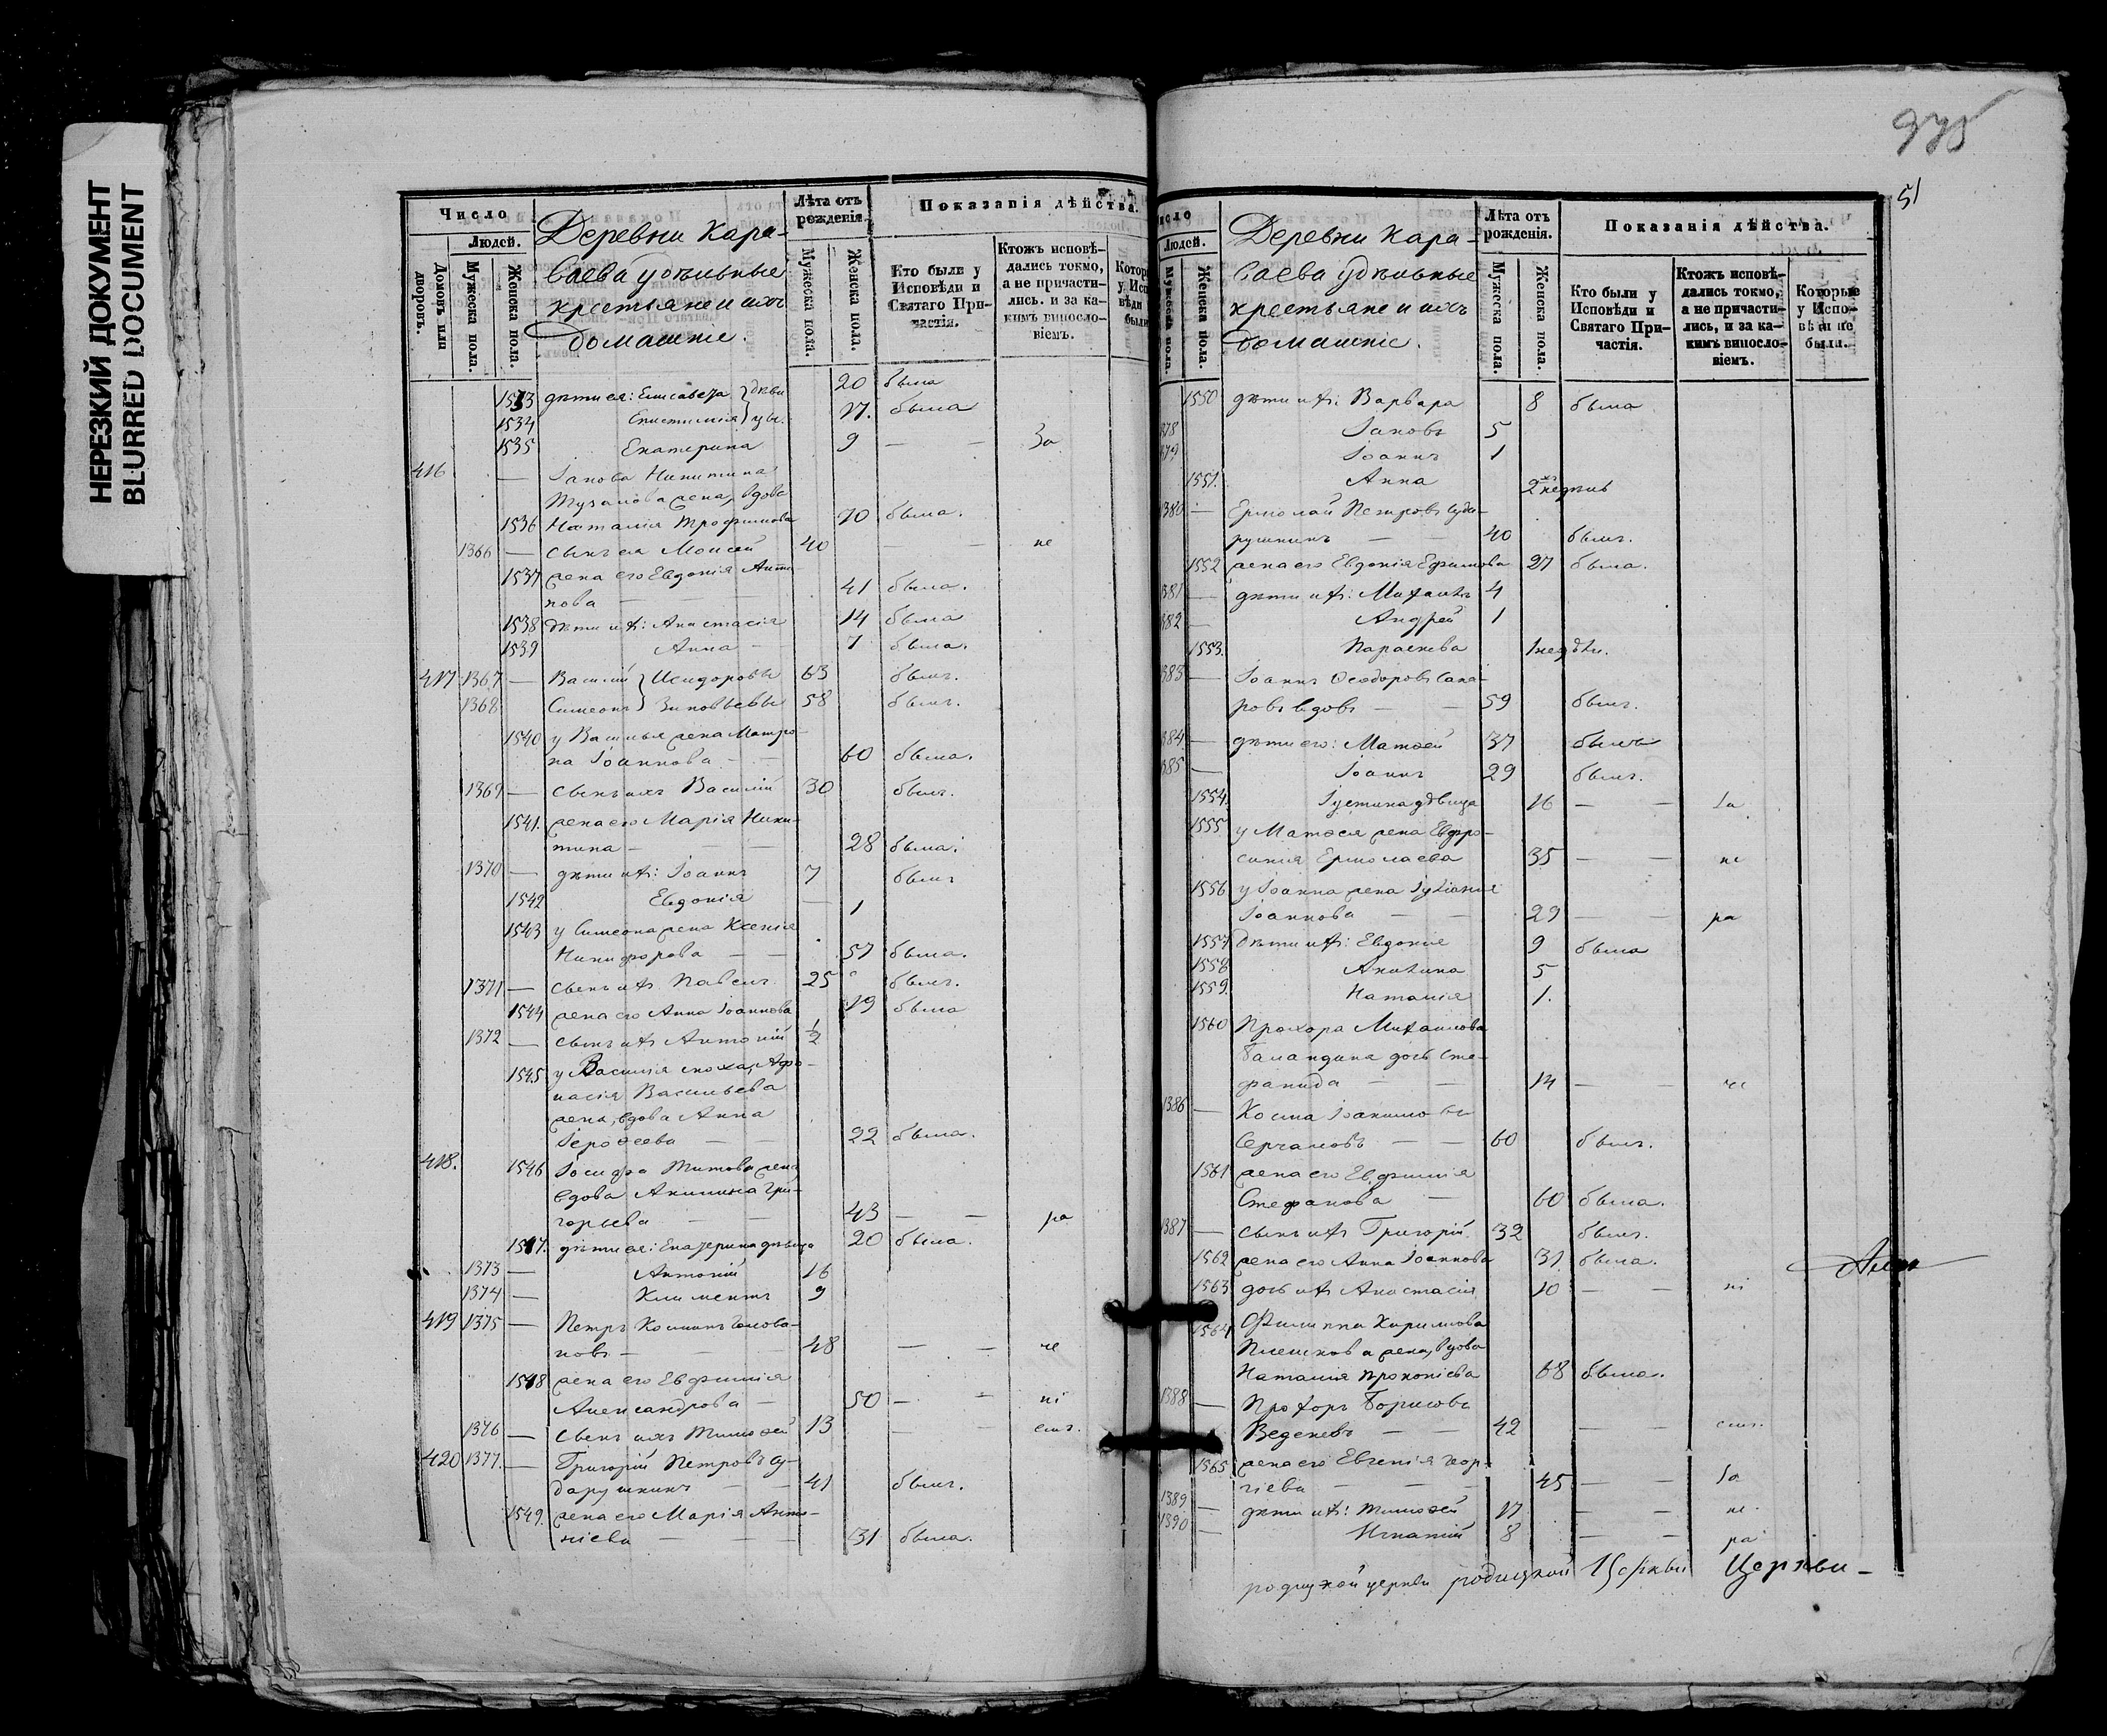 НЕРЕЗКИЙ ДОКУМЕНТ
BLURRED DOCUMENT
Число
Людей.
Домовъ или дворовъ.
Мужеска пола.
Женска пола.
Деревни Кара-
саева удѣльные
крестьяне и ихъ
домашніе.
Лѣта отъ рожденія.
Мужеска пола.
Женска пола.
Показанія дѣйства.
Кто были у Исповѣди и Святаго Причастія.
Ктожъ исповѣдались токмо, а не причастились. и за какимъ винословіемъ.
1533 дѣти ея: Елисавета 20 была
1534 Епистимія 17. была
1535 Екатерина 9 — — За
416 — Іакова Никитина
жена, вдова
1536 Наталія Трофимова 70 была.
1366 — сынъ ея Моисей 40 — не
1537 жена его Евдокія
41 была.
1538 дѣти ихъ: Анастасія 14 была
1539 Анна — 7 была.
417 1367 — Василій Исидоровы 63 былъ.
1368 Симеонъ Зиновьевы 58 былъ.
1540 у Василья жена Матро-
на Іоаннова — — 60 была.
1369 — сынъ ихъ Василій 30 былъ.
1541. жена его Марія Ники-
тина — — — 28 была.
1370 — дѣти ихъ: Іоаннъ 7 былъ
1542 Евдокія — 1
1543 у Симеона жена Ксенія
Никифорова — — 57 была.
1371 — сынъ ихъ Павелъ 25 былъ.
1544 жена его Анна Іоаннова 19 была
1372 — сынъ ихъ Антоній ½
1545 у Василія сноха, Афа-
насія Васильева
жена, вдова Анна
Іероѳеева — — 22 была.
418. 1546 Іосифа Титова жена
вдова Акилина Гри-
горьева — — 43 — — ра
1547. дѣти ея: Екатерина дѣвица 20 была.
1373 — Антоній 16
1374 — Климентъ 9
419 1375 — Петръ Космин Голова-
новъ — — — 48 — — че
1548 жена его Евфимія
Александрова — 50 — — ні
1376 — сынъ ихъ Тимоѳей 13 — — емъ.
420 1377. — Григорій Петровъ Су-
дарушкинъ — — 41 былъ.
1549. жена его Марія Анто-
ніева — — — 31 была.
975
51
Число
Людей.
Мужеска пола.
Женска пола.
Деревни Кара-
саева удѣльные
крестьяне и ихъ
домашніе.
Лѣта отъ рожденія.
Мужеска пола.
Женска пола.
Показанія дѣйства.
Кто были у Исповѣди и Святаго Причастія.
Ктожъ исповѣдались токмо, а не причастились, и за какимъ винословіемъ.
Которые у Исповѣди не были.
1550 дѣти ихъ: Варвара 8 была
378 Іаковъ 5
379 Іоаннъ 1
1551. Анна 2хъ недѣль
1380 — Ермолай Петровъ Суда-
рушкинъ — — 40 былъ.
1552 жена его Евдокія Ефимова 27 была.
381 — дѣти ихъ: Михаилъ 4
382 — Андрей 1
1553. Параскева 1 недѣли.
383 — Іоаннъ Ѳеодоровъ Сапа-
ровъ вдовъ — — 59 былъ.
384 — дѣти его: Матѳей 37 былъ
385 — Іоаннъ 29 былъ.
1554. Іустина дѣвица 16 — — За
1555 у Матѳея жена Евфро-
синія Ермолаева 35 — — не
1556 у Іоанна жена Іуліанія
Іоаннова — — 29 — — ра
1557 дѣти ихъ: Евдокія 9 была
1558 Акилина 5
1559. Наталія 1.
1560 Прохора Михаилова
Баландина дочь Сте-
фанида — — 14 — — че
1386 — Косма Іоакимовъ
Серчаловъ — — 60 былъ.
1561 жена его Евфимія
Стефанова — 60 была.
1387 — сынъ ихъ Григорій 32 былъ.
1562 жена его Анна Іоаннова 31 была.
1563 дочь ихъ Анастасія 10 — — ні
1564 Филиппа Кирилова
Плешкова жена, вдова
Наталія Прокопіева 68 была.
1388 — Прохоръ Борисовъ
Веденевъ — — 42 — — емъ.
1565 жена его Евгенія Геор-
гіева — — — 45 — — За
1389 — дѣти ихъ: Тимоѳей 17 — — не
1390 — Игнатій 8 — — ра
Церкви